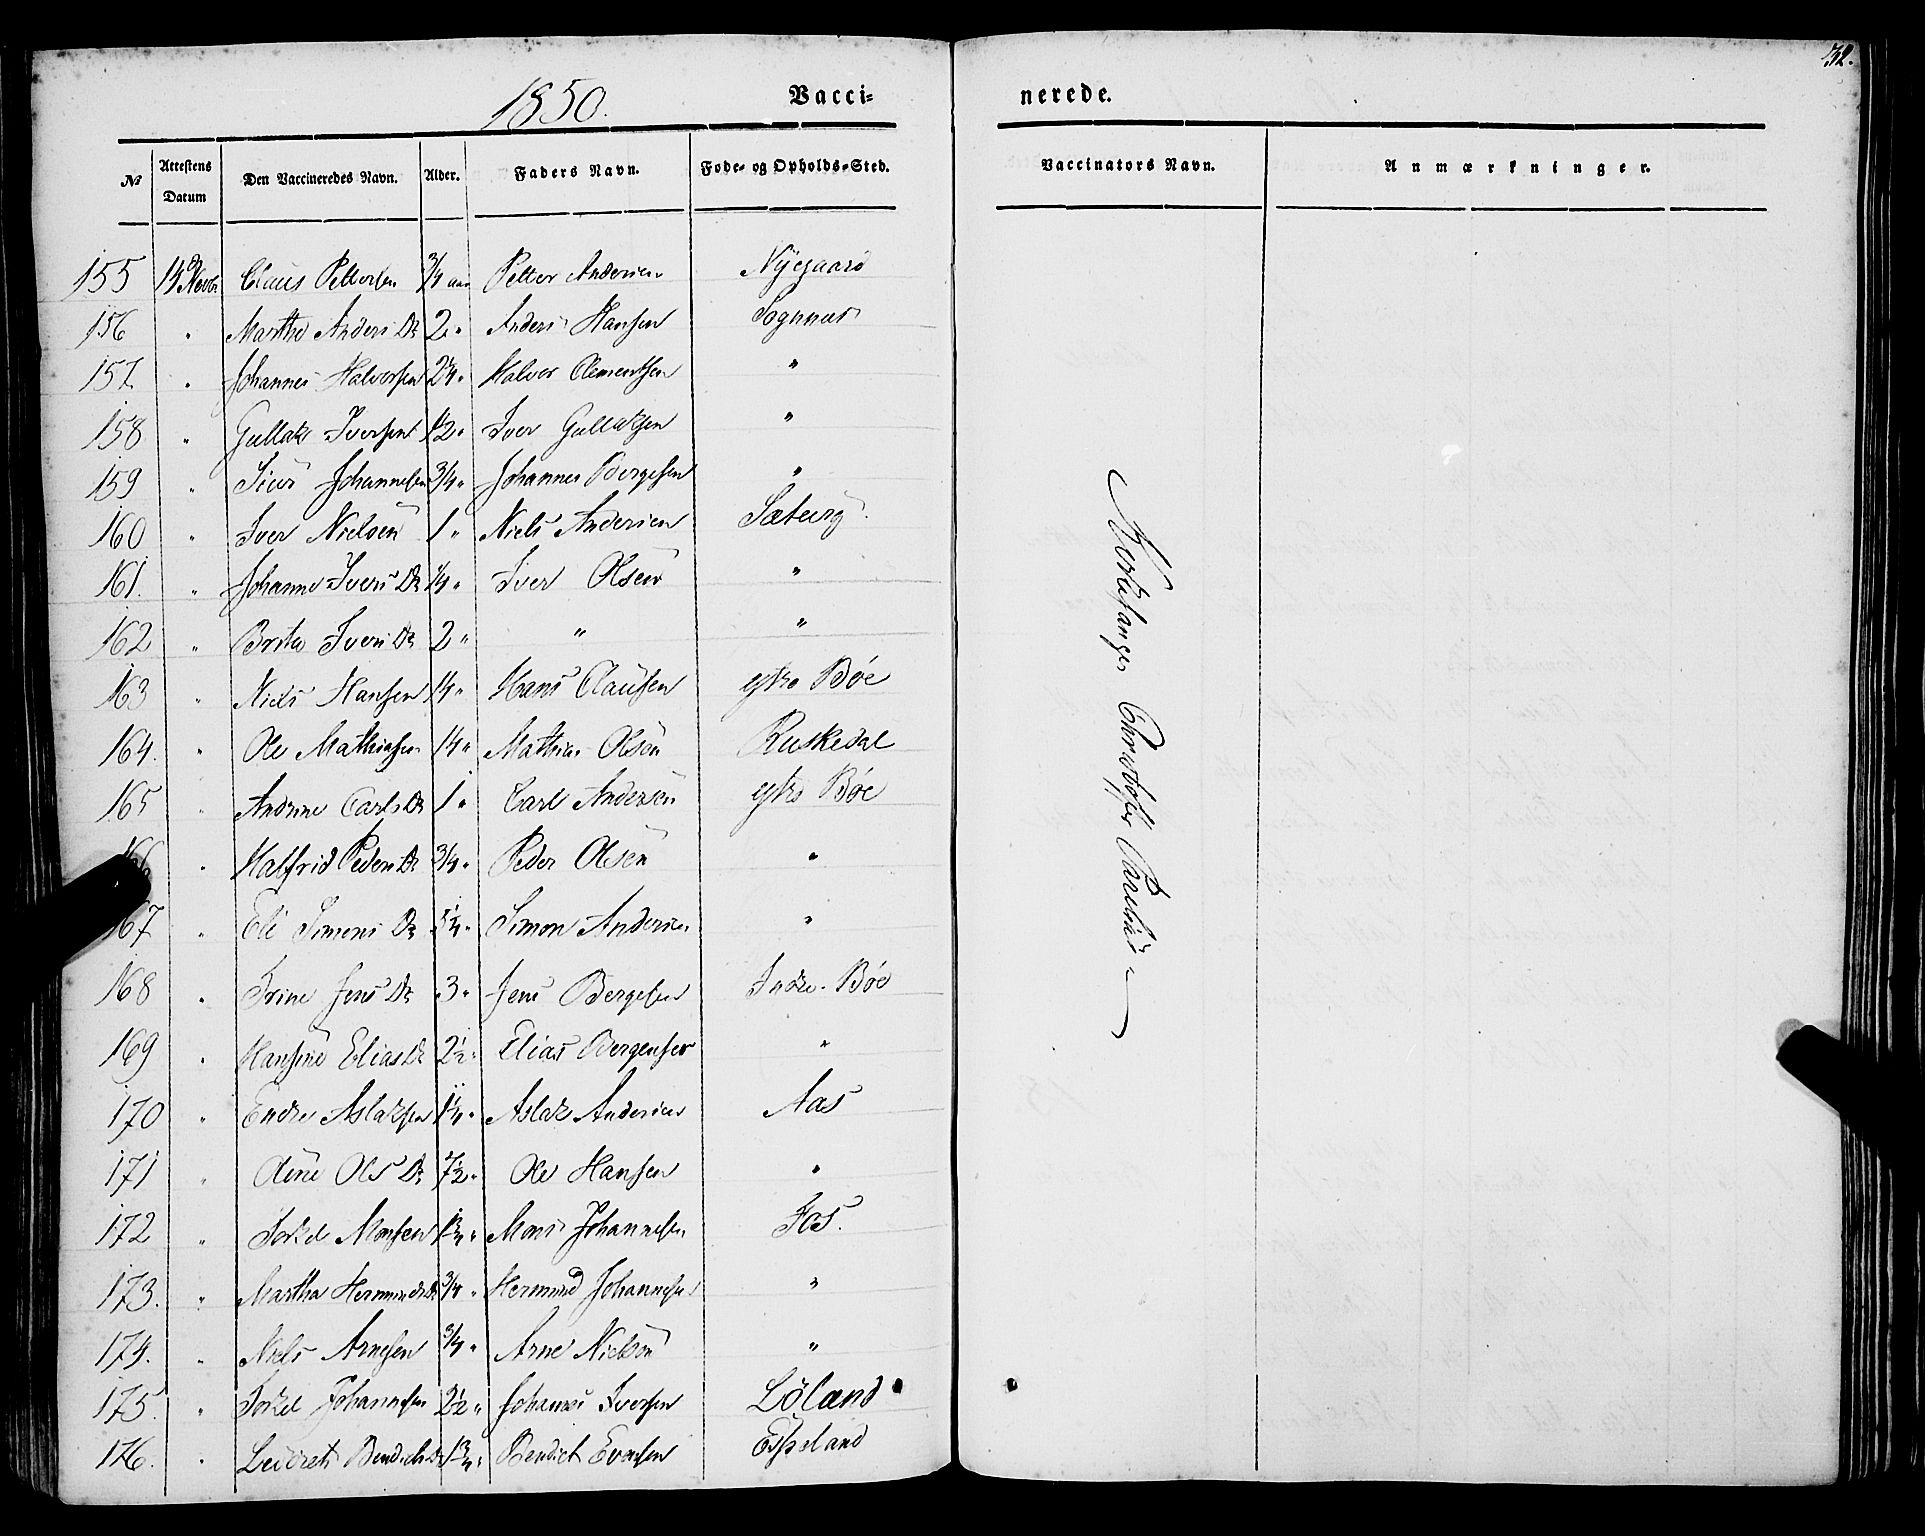 32.
1850. Vacci= nerede.
№ Attestens Datum Den Vaccineredes Navn. Alder. Faders Navn. Føde- og Opholds-Sted. Vaccinators Navn. Anmærkninger.
155 14 Novbr Claus Pettersen 3/4 aar Petter Andersen Nÿegaard
156 " Marthe Anders Dr 2 " Anders Hansen Sognnæs
157 " Johannes Halvorsen 2 1/4 " Halvor Clementsen "
158 " Gullak Iversen 1/2 " Iver Gullaksen "
159 " Siur Johannesen 3/4 " Johannes Børgesen "
160 " Iver Nielsen 1 " Niels Andersen Sæteurg
161. " Johanne Ivers Dr 1/4 " Iver Olsen "
162 " Brita Ivers Dr 2 " " "
163 " Niels Hansen 1/4 " Hans Clausen ytre Bøe
164. " Ole Mathiasen 1/4 " Mathias Olsen Ruskedal
165 " Andrine Carls Dr 1 " Carl Andersen ytre Bøe
166 " Halfrid Peders Dr 3/4 " Peder Olsen "
167 " Eli Simons Dr " Simon Andersen "
168 " Trine Jens Dr 3 " Jens Børgesen Indre Bøe
169 " Hansine Elias Dr 2 1/2 " Elias Børgensen "
170 " Endre Aslaksen 1 1/4 " Aslak Andersen Aas
171 " Oline Ols Dr 7 1/2 " Ole Hansen "
172 " Torkel Monsen 1 3/4 " Mons Johannesen Fos.
173. " Martha Hermunds Dr 3/4 " Hermund Johannesen "
174. " Niels Arnesen 3/4 " Arne Nielsen "
175. " Torkel Johannesen 2 1/2 " Johannes Iversen Löland
176. " Bendicts Dr 1 3/4 " Bendict Evensen Espeland
Kirkesanger Christopher